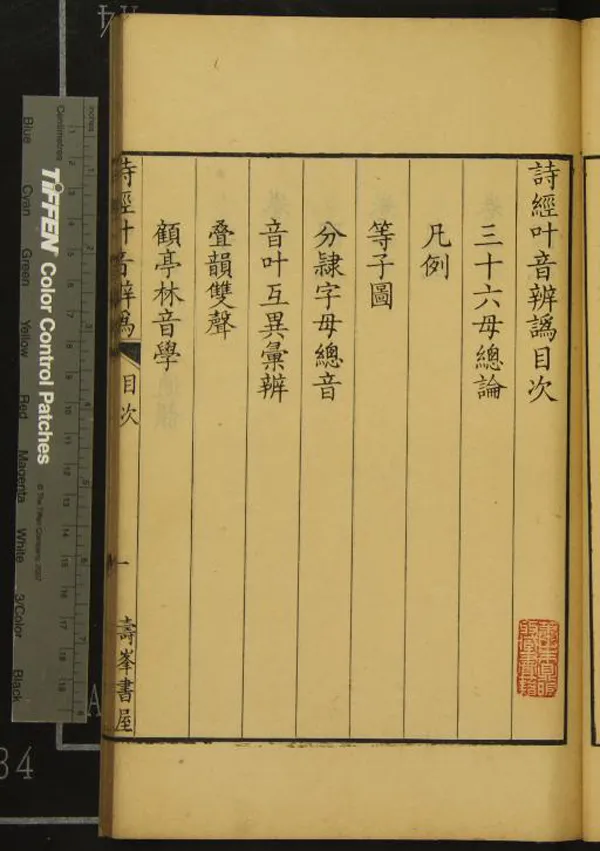 詩經叶音辨譌目次
三十六母總論
凡例
等子圖
分隷字母總音
音叶互異彙辨
叠韻雙聲
顧亭林音學
詩經叶音辨譌
目次
一
壽峯書屋
inches
Centimetres
TIFFEN Color Control Patches
© The Tiffen Company, 2007
Blue
Cyan
Green
Yellow
Red
Magenta
White
3/Color
Black
A4
34
A